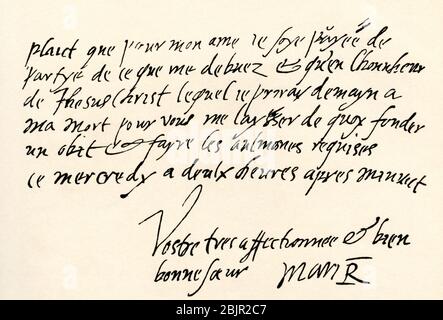 plaict que pour mon ame ie soye payée de
partye de ce que me debuez & qu'en l'honneur
de Jhesus Christ lequel ie priray demayn a
ma mort pour vous me laysser de quoy fonder
un obit & fayre les aulmones requises
ce mercredy a deulx heures apres minuict
Vostre tres affectionnee & bien
bonne sœur MARI R
alamy
Image ID: 2BJR2C7
www.alamy.com